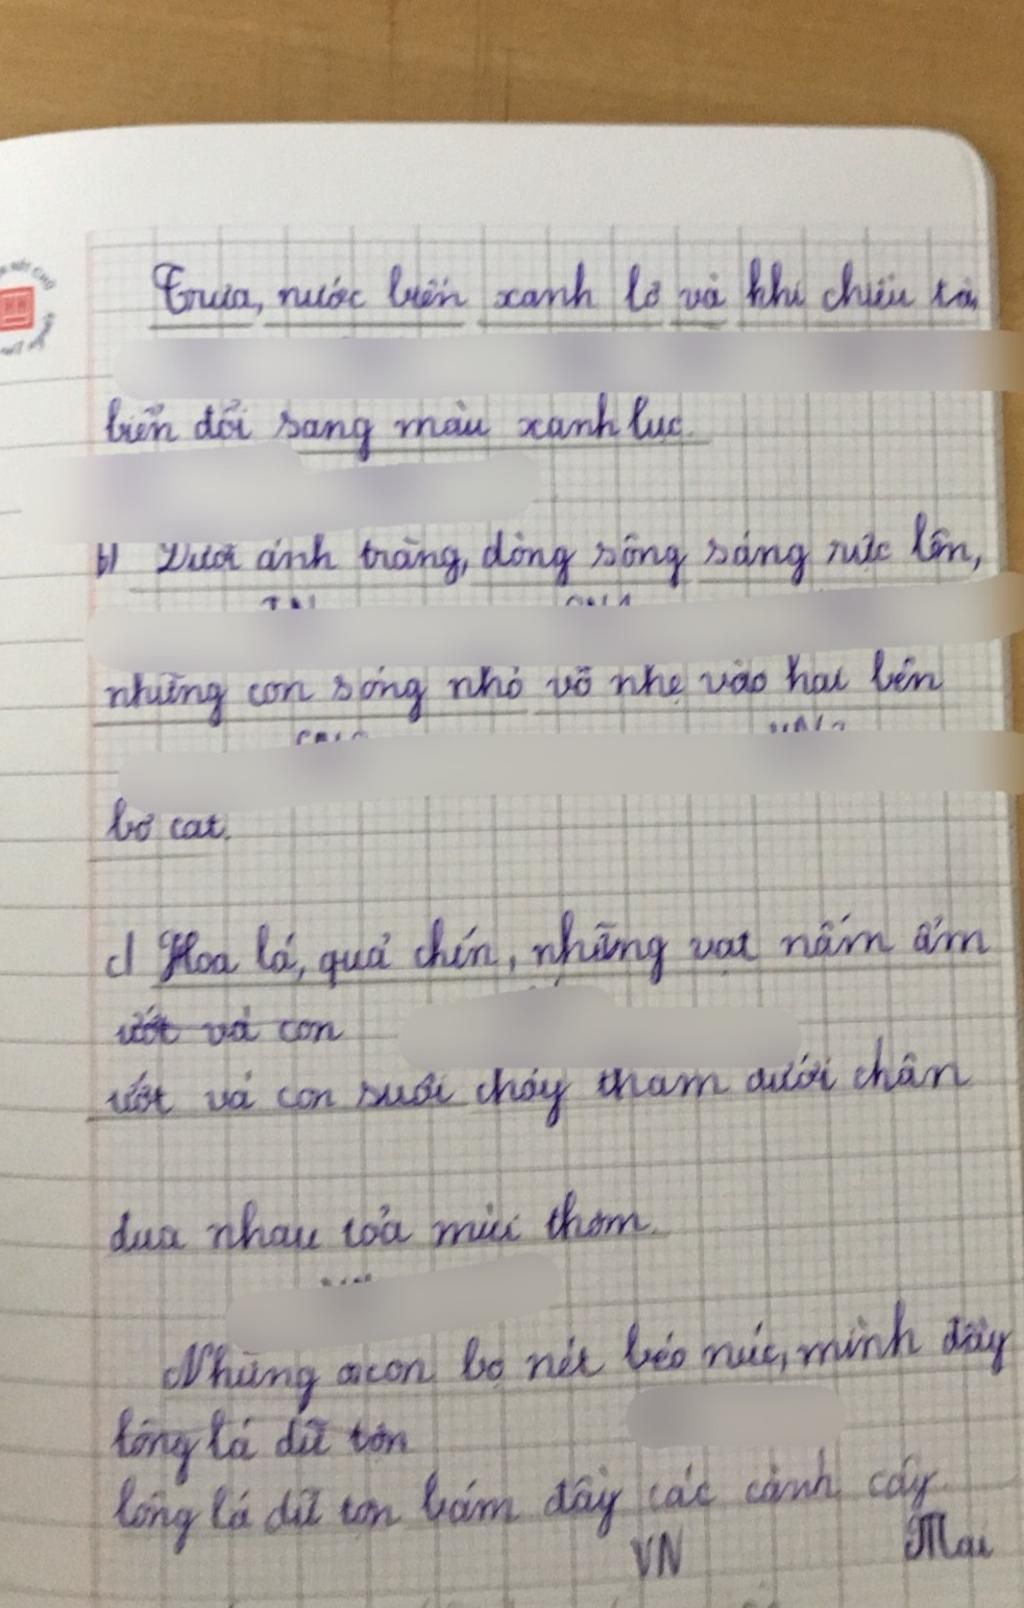 Trưa, nước biển xanh lơ và khi chiều tà,
biển đổi sang màu xanh lục.
b) Dưới ánh trăng, dòng sông sáng rực lên,
những con sóng nhỏ vỗ nhẹ vào hai bên
bờ cát.
c) Hoa lá, quả chín, những vạt nấm ẩm
ướt và con
ướt và con suối chảy tham dưới chân
đua nhau toả mùi thơm.
Những con bọ nét béo núc, mình đầy
lông lá dữ tợn
lông lá dữ tợn bám đầy các cành cây.
VN Mai